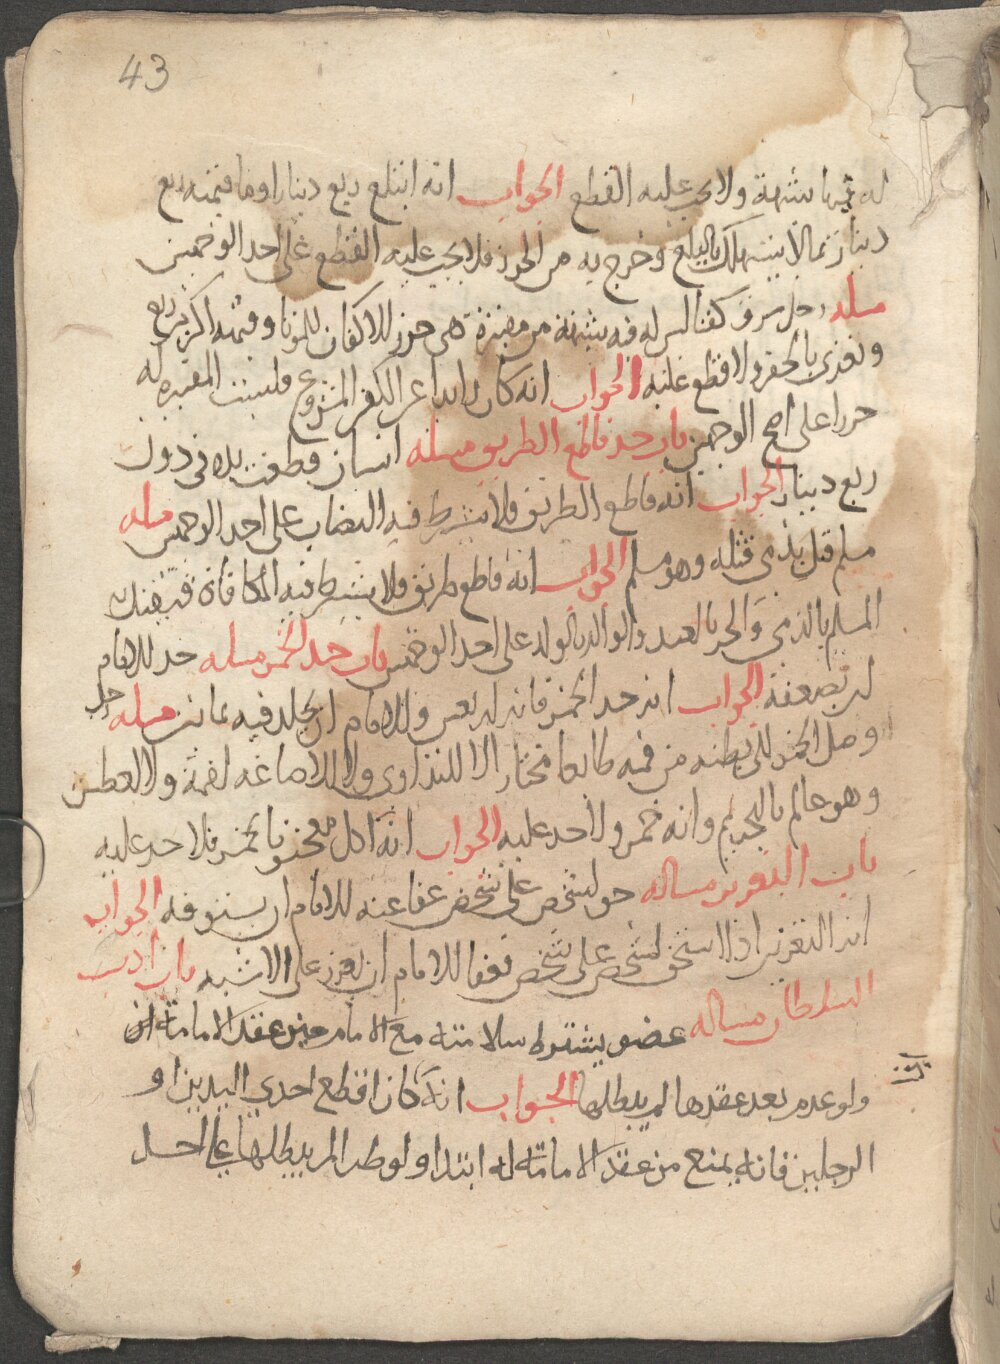 43
له فيها شبهة ولا يجب عليه القطع الجواب انه ابتلع ربع دينار او ما قيمته ربع
دينار مما لا يستهلك بالبلع وخرج به من الحرز فلا يجب عليه القطع على احد الوجهين
مسله رجل سرق كفنا ليس له فيه شبهة من مقبرة هي حرز للاكفان للموتا وقيمته اكثر من ربع
بالحفر ولا قطع عليه الجواب انه كان زايدا عن الكفن المشروع وليست المقبرة له
حرزا على اصح الوجهين باب حد قاطع الطريق مسله انسان قطعت يده في دون
ربع دينار الجواب انه قاطع الطريق فلا يشترط فيه النصاب على احد الوجهين مسله
مسلم قتل بذمي قتله وهو مسلم الجواب انه قاطع طريق ولا يشترط فيه المكافاة فيقتل
المسلم بالذمي والحر بالعبد والوالد بالولد على احد الوجهين باب حد الخمر مسله حد للامام
ان يضعفه الجواب انه حد الخمر فانه اربعين وللامام ان يجلد فيه ثمانين مسله رجل
وصل الخمر الى بطنه من فمه طايعا مختارا لا للتداوي ولا لاصاغة لقمة ولا لعطش
وهو عالم بالتحريم وانه خمر ولا حد عليه الجواب انه اكل معجونا بخمر فلا حد عليه
باب التعزير مساله حق لشخص على شخص عفا عنه للامام ان يستوفيه الجواب
انه التعزير اذا استحق لشخص على شخص فعفا للامام ان يعزر على الاشبه باب ادب
السلطان مساله عضو يشترط سلامته مع الامام حين عقد الامامة
ولو عدم بعد عقدها لم يبطلها الجواب انه كان اقطع احدي اليدين او
الرجلين فانه يمنع من عقد الامامة له ابتدا ولو طرا لم يبطلها على احد